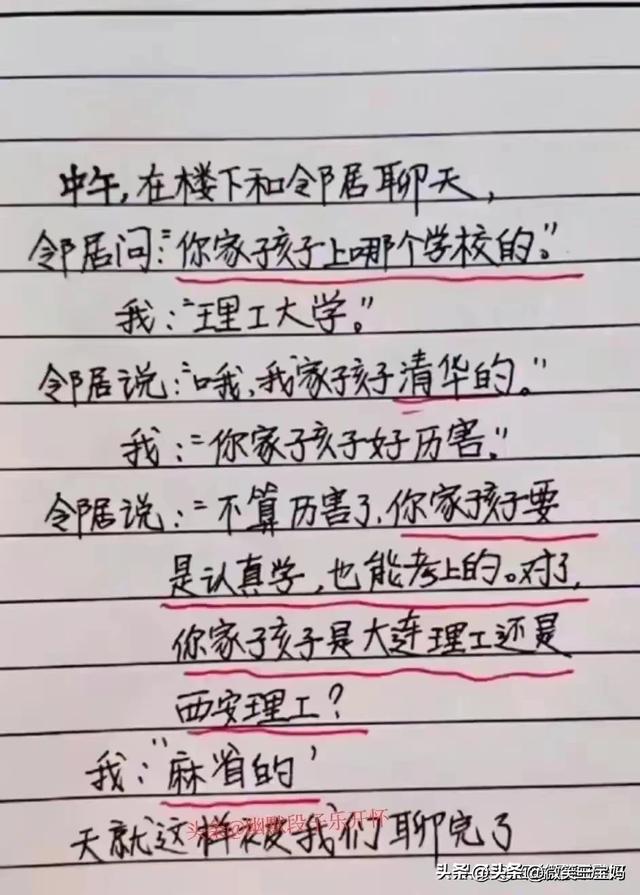 中午,在楼下和邻居聊天,
邻居问:"你家孩子上哪个学校的。"
我:"理工大学。"
邻居说:"哦,我家孩子清华的。"
我:"你家孩子好厉害。"
邻居说:"不算厉害了,你家孩子要
是认真学,也能考上的。对了,
你家孩子是大连理工还是
西安理工?
我:"麻省的'
头条@幽默段子乐开怀
天就这样被我们聊完了
头条@微笑三宝妈